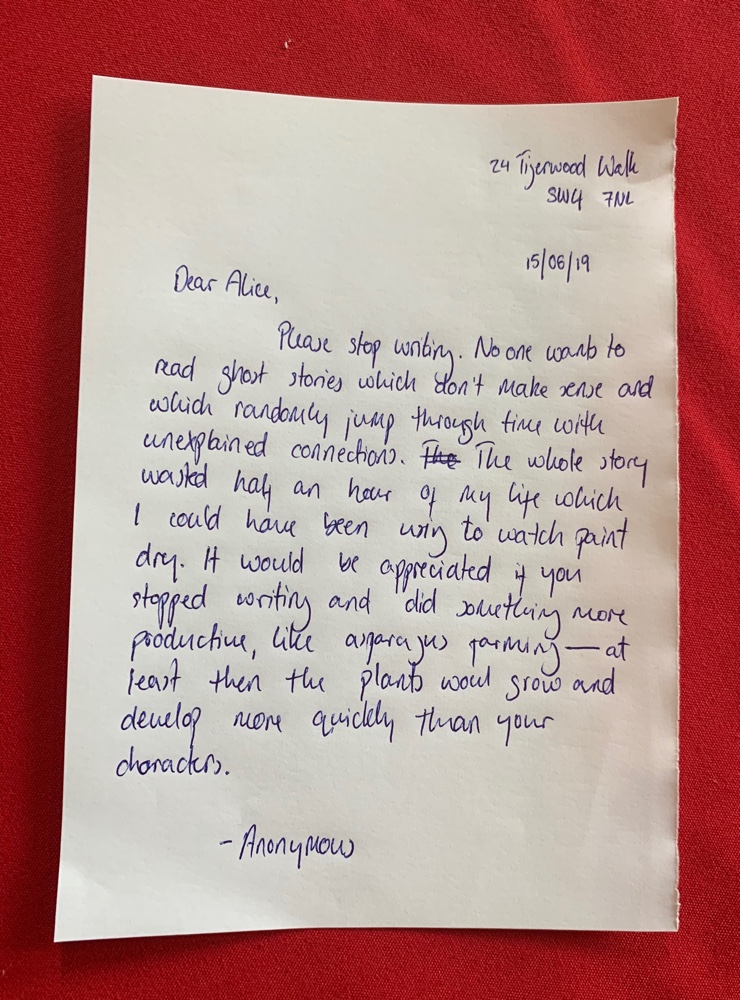 24 Tigerwood Walk
SW4 7NL
15/06/19
Dear Alice,
Please stop writing. No one wants to
read ghost stories which don't make sense and
which randomly jump through time with
unexplained connections. The The whole story
wasted half an hour of my life which
I could have been using to watch paint
dry. It would be appreciated if you
stopped writing and did something more
productive, like asparagus farming—at
least then the plants woul grow and
develop more quickly than your
characters.
- Anonymous